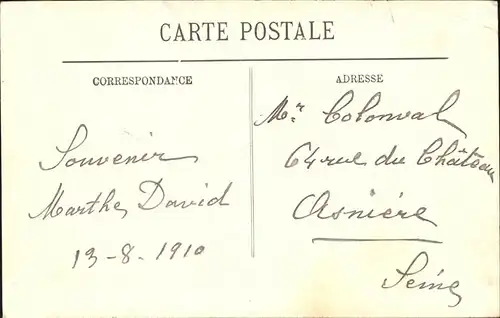 CARTE POSTALE
CORRESPONDANCE
Souvenir
Marthe David
13-8-1910
ADRESSE
Mr Colonval
64 rue du Château
Asnière
Seine